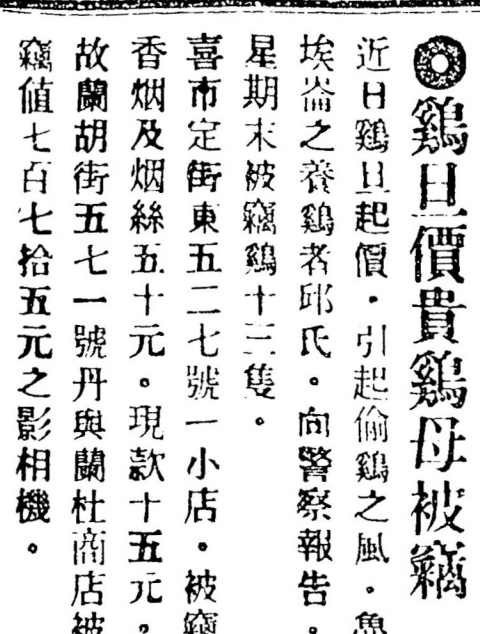 ◎鷄旦價貴鷄母被竊
近日鷄旦起價・引起偷鷄之風・魯
埃崙之養鷄者邱氏。向警察報告。
星期末被竊鷄十三隻。
喜市定街東五二七號一小店。被竊
香烟及烟絲五十元。現款十五元。
故蘭胡街五七一號丹與蘭杜商店被
竊值七百七拾五元之影相機。